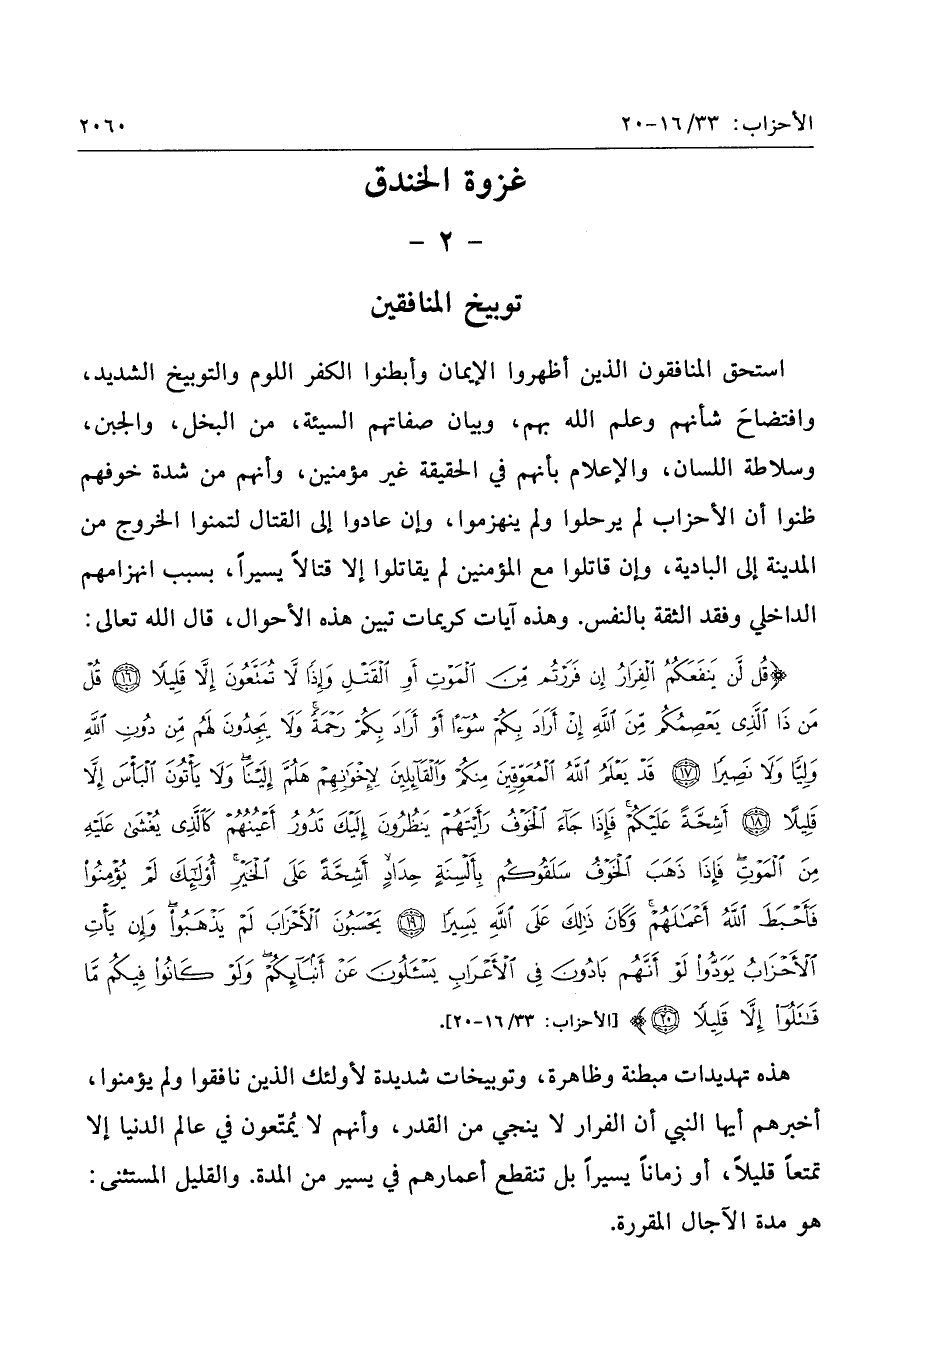 الأحزاب: ٣٣/ ١٦-٢٠ ٢٠٦٠
غزوة الخندق
- ٢ -
توبيخ المنافقين
استحق المنافقون الذين أظهروا الإيمان وأبطنوا الكفر اللوم والتوبيخ الشديد،
وافتضاحَ شأنهم وعلم الله بهم، وبيان صفاتهم السيئة، من البخل، والجبن،
وسلاطة اللسان، والإعلام بأنهم في الحقيقة غير مؤمنين، وأنهم من شدة خوفهم
ظنوا أن الأحزاب لم يرحلوا ولم ينهزموا، وإن عادوا إلى القتال لتمنوا الخروج من
المدينة إلى البادية، وإن قاتلوا مع المؤمنين لم يقاتلوا إلا قتالاً يسيراً، بسبب انهزامهم
الداخلي وفقد الثقة بالنفس. وهذه آيات كريمات تبين هذه الأحوال، قال الله تعالى:
﴿قُل لَّن يَنفَعَكُمُ ٱلْفِرَارُ إِن فَرَرْتُم مِّنَ ٱلْمَوْتِ أَوِ ٱلْقَتْلِ وَإِذًا لَّا تُمَتَّعُونَ إِلَّا قَلِيلًا ١٦ قُلْ
مَن ذَا ٱلَّذِى يَعْصِمُكُم مِّنَ ٱللَّهِ إِنْ أَرَادَ بِكُمْ سُوٓءًا أَوْ أَرَادَ بِكُمْ رَحْمَةً ۚ وَلَا يَجِدُونَ لَهُم مِّن دُونِ ٱللَّهِ
وَلِيًّا وَلَا نَصِيرًا ١٧ قَدْ يَعْلَمُ ٱللَّهُ ٱلْمُعَوِّقِينَ مِنكُمْ وَٱلْقَآئِلِينَ لِإِخْوَٰنِهِمْ هَلُمَّ إِلَيْنَا ۖ وَلَا يَأْتُونَ ٱلْبَأْسَ إِلَّا
قَلِيلًا ١٨ أَشِحَّةً عَلَيْكُمْ ۖ فَإِذَا جَآءَ ٱلْخَوْفُ رَأَيْتَهُمْ يَنظُرُونَ إِلَيْكَ تَدُورُ أَعْيُنُهُمْ كَٱلَّذِى يُغْشَىٰ عَلَيْهِ
مِنَ ٱلْمَوْتِ ۖ فَإِذَا ذَهَبَ ٱلْخَوْفُ سَلَقُوكُم بِأَلْسِنَةٍ حِدَادٍ أَشِحَّةً عَلَى ٱلْخَيْرِ ۚ أُو۟لَٰٓئِكَ لَمْ يُؤْمِنُوا۟
فَأَحْبَطَ ٱللَّهُ أَعْمَٰلَهُمْ ۚ وَكَانَ ذَٰلِكَ عَلَى ٱللَّهِ يَسِيرًا ١٩ يَحْسَبُونَ ٱلْأَحْزَابَ لَمْ يَذْهَبُوا۟ ۖ وَإِن يَأْتِ
ٱلْأَحْزَابُ يَوَدُّوا۟ لَوْ أَنَّهُم بَادُونَ فِى ٱلْأَعْرَابِ يَسْـَٔلُونَ عَنْ أَنۢبَآئِكُمْ ۖ وَلَوْ كَانُوا۟ فِيكُم مَّا
قَٰتَلُوٓا۟ إِلَّا قَلِيلًا ٢٠﴾ [الأحزاب: ٣٣/ ١٦-٢٠].
هذه تهديدات مبطنة وظاهرة، وتوبيخات شديدة لأولئك الذين نافقوا ولم يؤمنوا،
أخبرهم أيها النبي أن الفرار لا ينجي من القدر، وأنهم لا يُمتّعون في عالم الدنيا إلا
تمتعاً قليلاً، أو زماناً يسيراً بل تنقطع أعمارهم في يسير من المدة. والقليل المستثنى:
هو مدة الآجال المقررة.